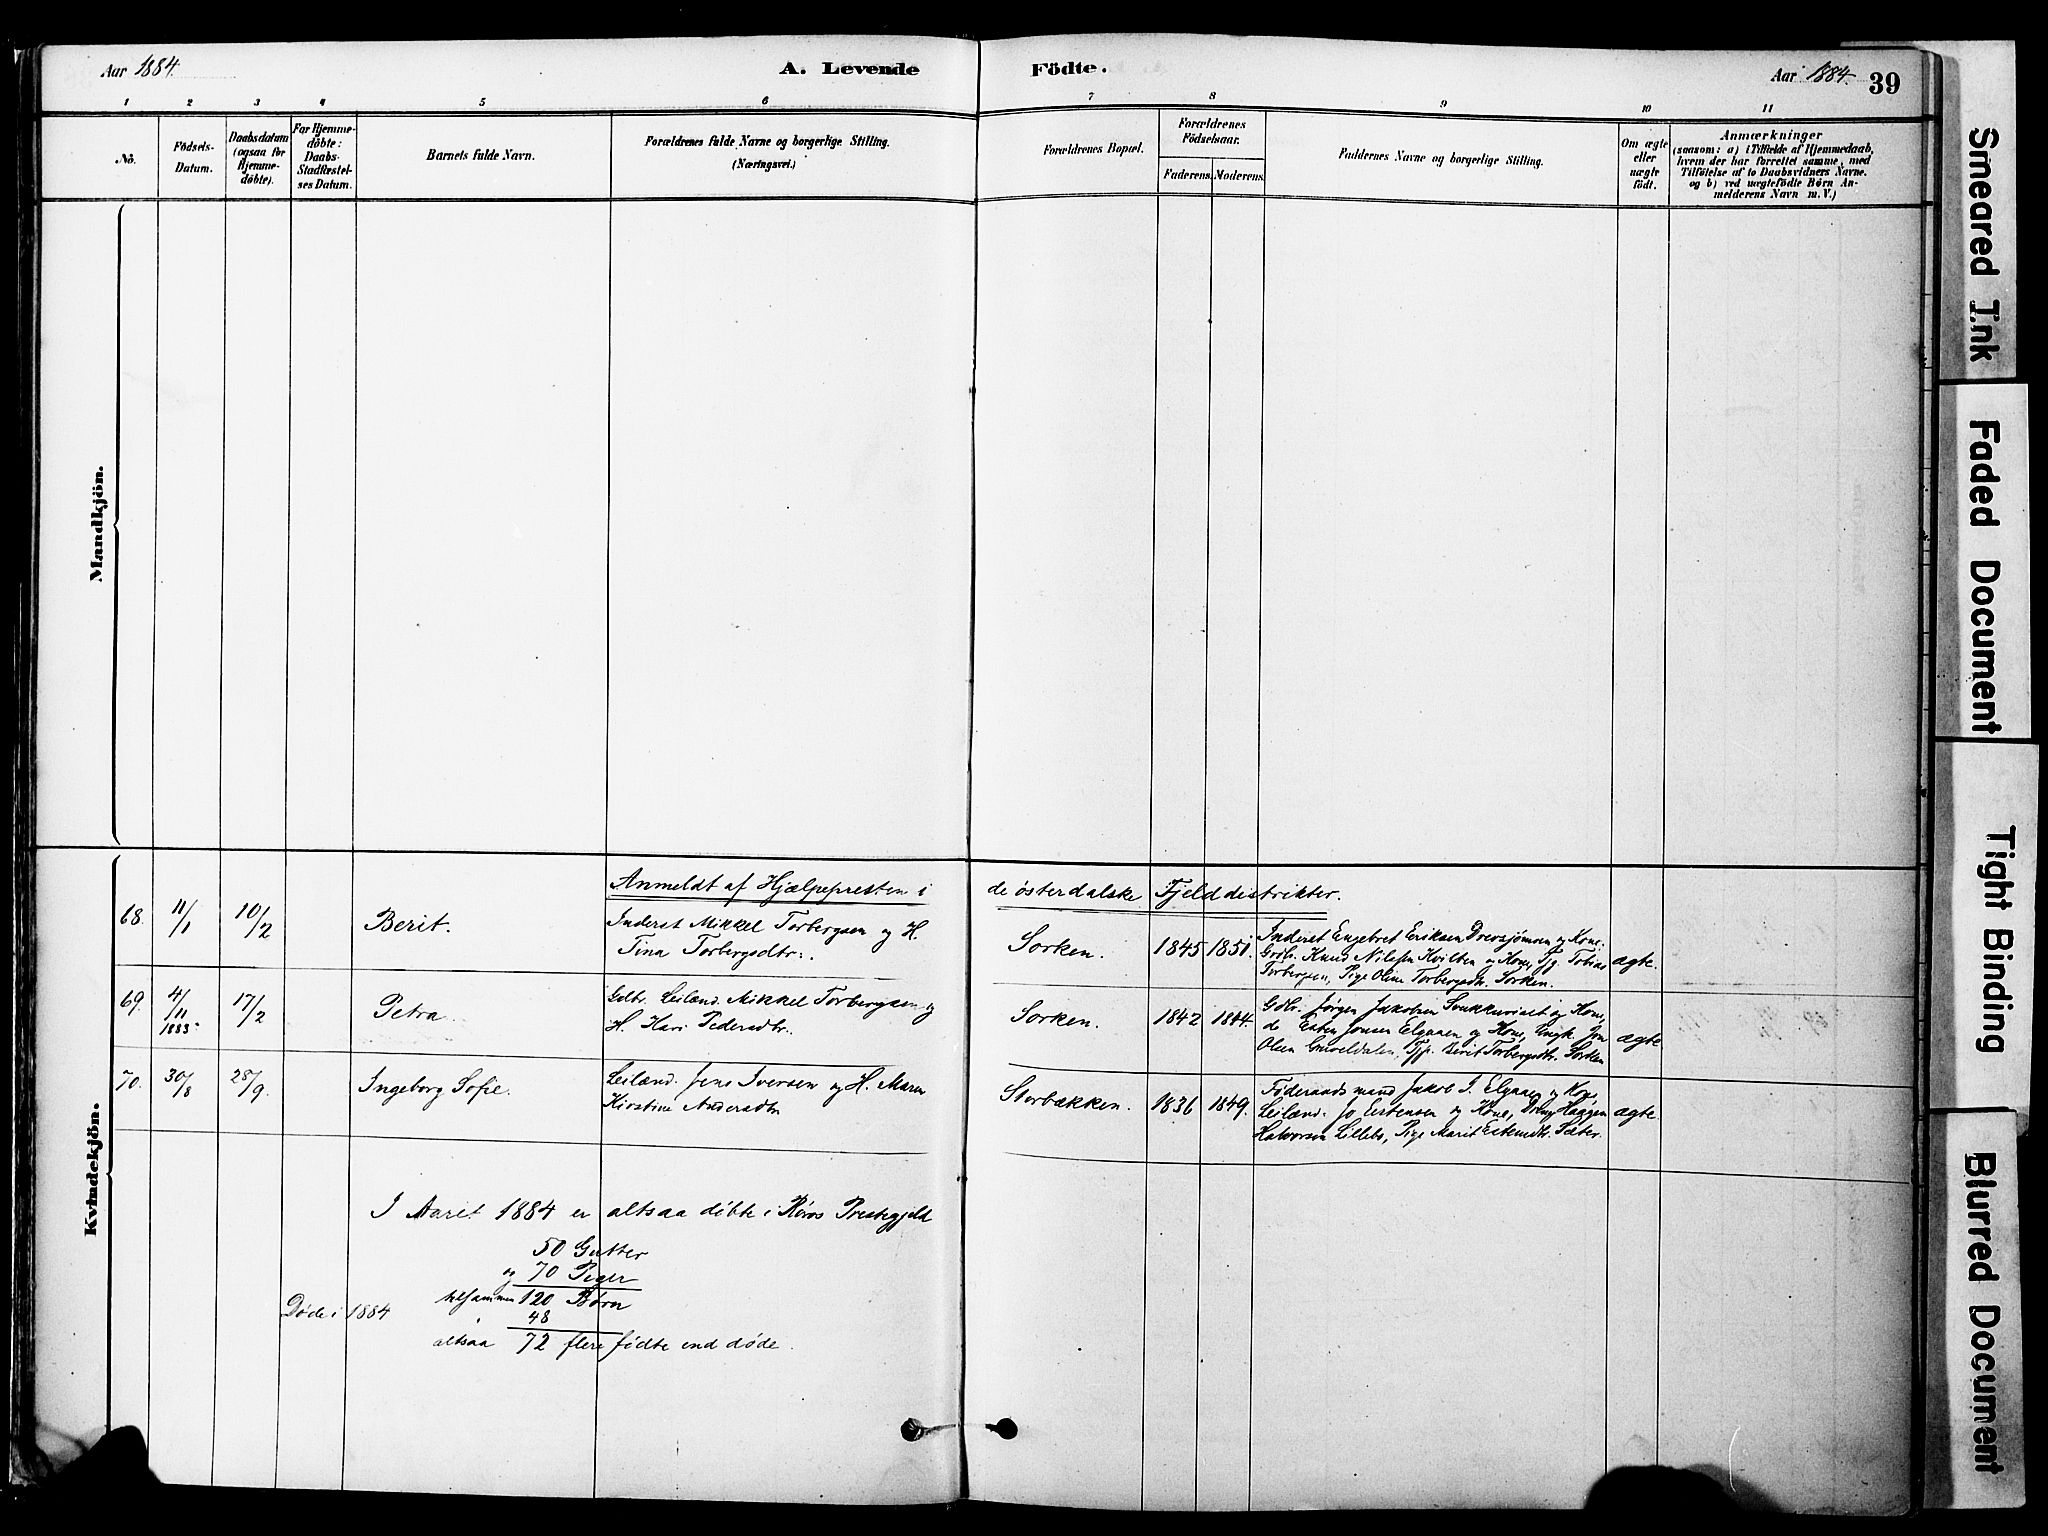 Aar 1884.
A. Levende Födte.
Aar 1884.
39
1 2 3 4 5 6 7 8 9 10 11
No.
Födsels-
Datum.
Daabsdatum
(ogsaa for
Hjemme-
döbte).
For Hjemme-
döbte:
Daabs-
Stadfæstel-
ses Datum.
Barnets fulde Navn.
Forældrenes fulde Navne og borgerlige Stilling.
(Næringsvei.)
Forældrenes Bopæl.
Forældrenes
Födselsaar.
Faderens. Moderens.
Faddernes Navne og borgerlige Stilling.
Om ægte
eller
uægte
födt.
Anmærkninger
(saasom: a) i Tilfælde af Hjemmedaab,
hvem der har forrettet samme, med
Tilföielse af to Daabsvidners Navne.
og b) ved uægtefödte Börn An-
melderens Navn m. V.)
Mandkjön.
Kvindekjön.
Anmeldt af Hjælpepresten i de österdalske Fjelddistrikter.
68. 11/1 10/2 Berit.
Inderst Mikkel Torbergsen og H.
Tina Torbergsdtr.
Sorken. 1845 1851.
Inderst Engebret Eriksen Drevsjømoen og Kone.
Gdbr. Knud Nilssen Kvilten og Kone, Tjg. Tobias
Torbergsen, Pige Oline Torbergsdtr. Sorken.
ægte.
69. 4/11 1883. 17/2 Petra.
Gdbr. Leilænd. Mikkel Torbergsen og
H. Kari Pedersdtr.
Sorken. 1842 1844.
Gdbr. Jørgen Jakobsen Sukkuriset og Kone,
do Esten Jonsen Elgaaen og Kone, Ungk. Jon
Olsen Grøveldalen, Tjp. Berit Torbergsdtr. Sorken
ægte
70. 30/8 28/9. Ingeborg Sofie.
Leilænd. Jens Iversen og H. Maren
Kirstine Andersdtr
Storbækken. 1836 1849.
Föderaadsmand Jakob J. Elgaaen og Kone,
Leilænd. Jo Estensen og Kone, Dreng Haagen
Halvorsen Lillebo, Pige Marit Estensdtr. Sæter.
ægte.
I Aaret 1884 er altsaa døbte i Røros Prestegjeld
50 Gutter
og 70 Piger
tilsammen 120 Børn
Døde i 1884 48
altsaa 72 flere fødte end døde.
Smeared Ink
Faded Document
Tight Binding
Blurred Document